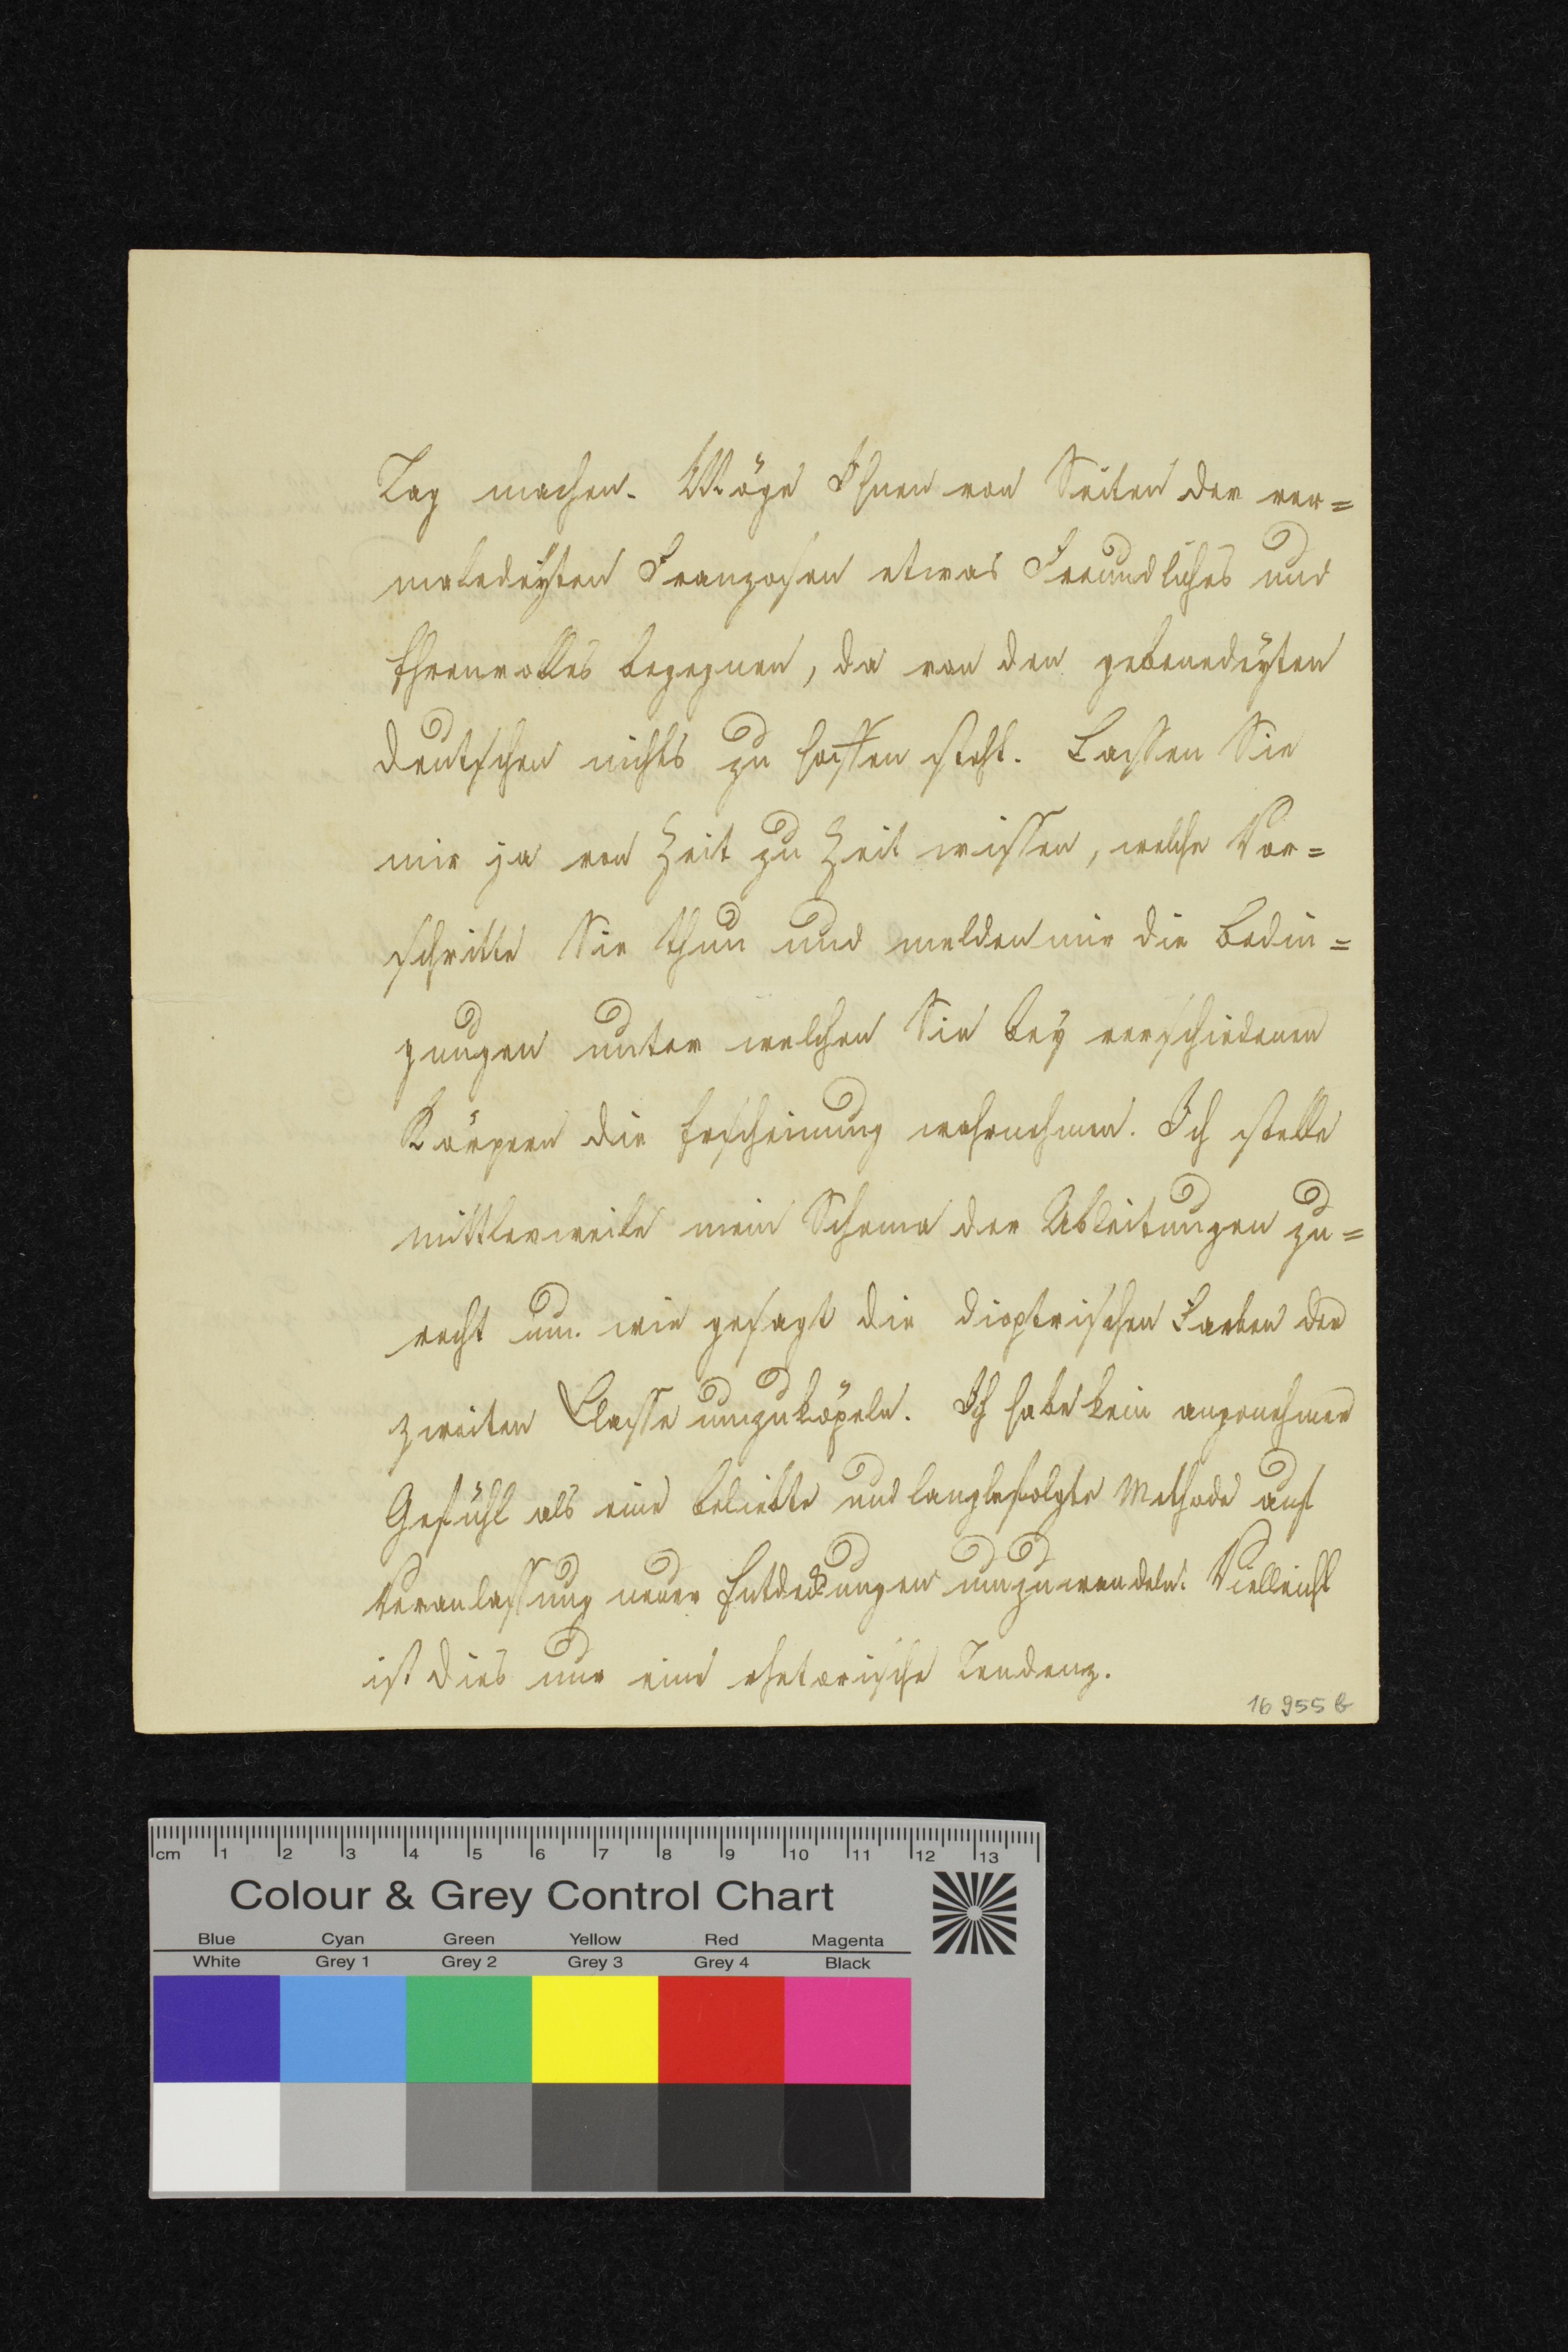 Tag machen. Möge Ihnen von Seiten der ver=
maledeyten Franzosen etwas Freundliches und
Ehrenvolles begegnen, da von den gebenedeyten
deutschen nichts zu hoffen steht. Lassen Sie
mir ja von Zeit zu Zeit wissen, welche Vor=
schritte Sie thun und melden mir die Bedin=
gungen unter welchen Sie bey verschiedenen
Körpern die Erscheinung wahrnehmen. Ich stelle
mittlerweile mein Schema der Ableitungen zu=
recht um. wie gesagt die dioptrischen Farben der
zweiten Classe umzuköpeln. Ich habe kein angenehmer
Gefühl als eine beliebte und langbefolgte Methode auf
Veranlassung neuer Entdeckungen umzuwandeln. Vielleicht
ist dies nur eine rhetorische Tendenz.
16 955 b
cm 1 2 3 4 5 6 7 8 9 10 11 12 13
Colour & Grey Control Chart
Blue Cyan Green Yellow Red Magenta
White Grey 1 Grey 2 Grey 3 Grey 4 Black